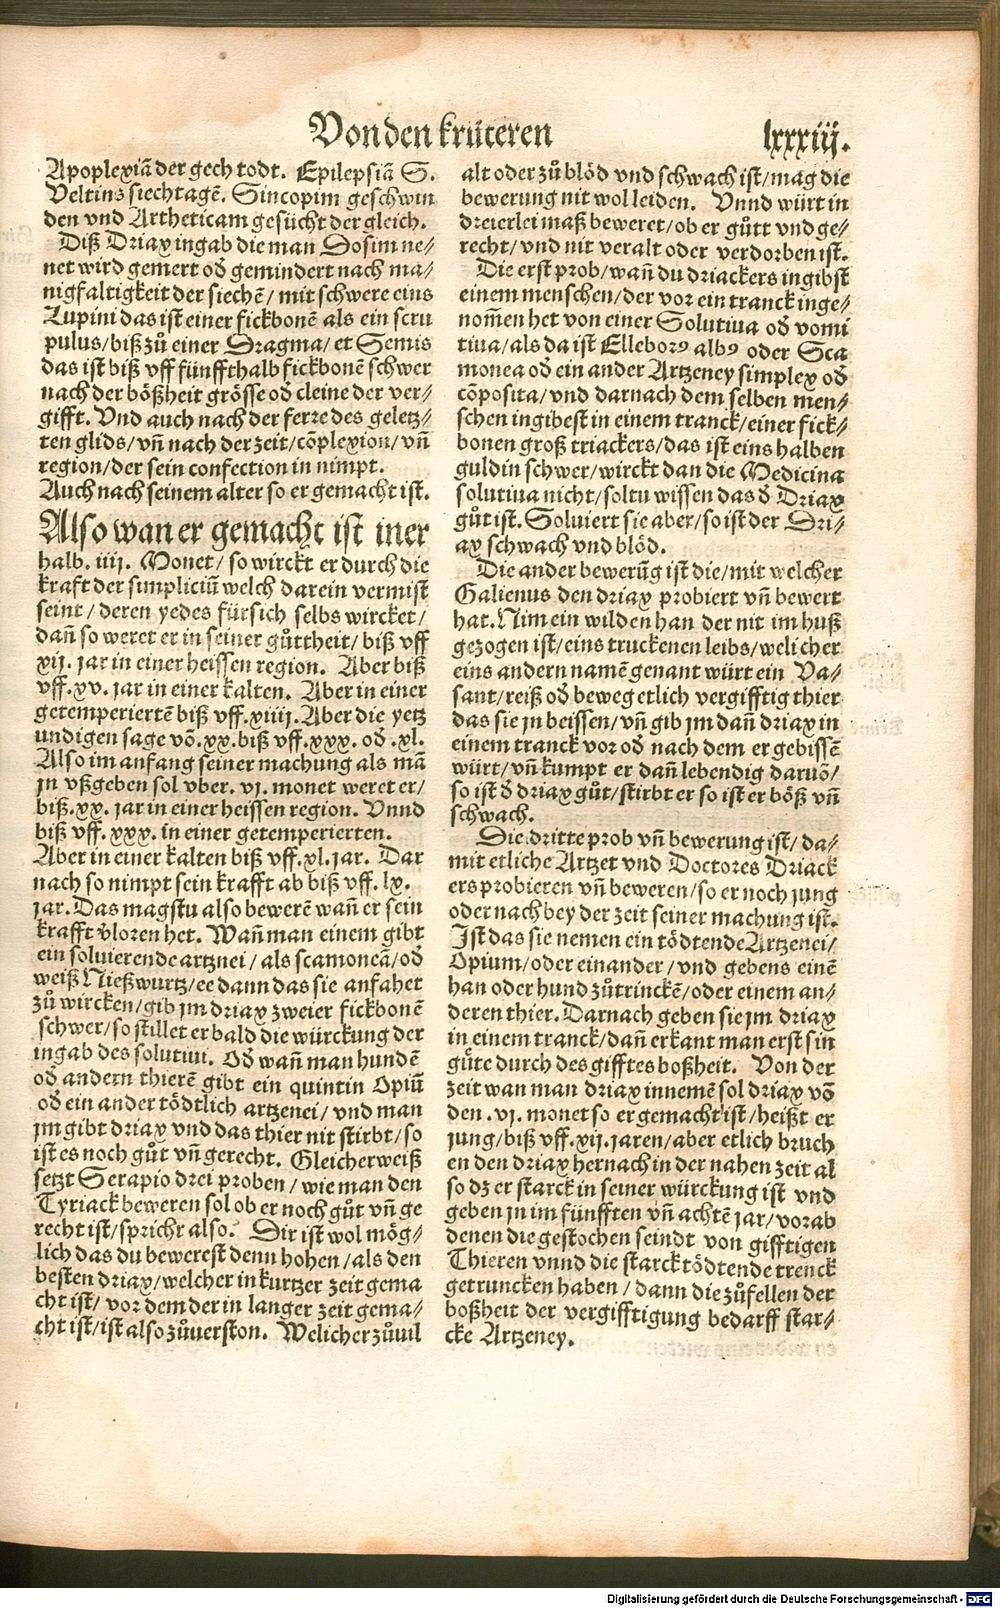 Von den krüteren
lxxxiij.
Apoplexiā der gech todt. Epilepsiā S.
Veltins siechtagē. Sincopim geschwin
den vnd Artheticam gesücht der gleich.
Diß Driax ingab die man Dosim ne⸗
net wird gemert od̄ gemindert nach ma⸗
nigfaltigkeit der siechē / mit schwere eins
Lupini das ist einer fickbonē als ein scru
pulus / biß zů einer Dragma / et Semis
das ist biß vff fünffthalb fickbonē schwer
nach der bößheit grösse od̄ cleine der ver⸗
gifft. Vnd auch nach der ferre des geletz⸗
ten glids / vn̄ nach der zeit / cōplexion / vn̄
region / der sein confection in nimpt.
Auch nach seinem alter so er gemacht ist.
Also wan er gemacht ist iner
halb. iij. Monet / so wirckt er durch die
krafft der simpliciū welch darein vermist
seint / deren yedes fürsich selbs wircket /
dan̄ so weret er in seiner gůttheit / biß vff
xij. jar in einer heissen region. Aber biß
vff. xv. jar in einer kalten. Aber in einer
getemperiertē biß vff. xiiij. Aber die yetz
undigen sage vō. xx. biß vff. xxx. od̄. xl.
Also im anfang seiner machung als mā
jn vßgeben sol vber. vj. monet weret er /
biß. xx. jar in einer heissen region. Vnnd
biß vff. xxx. in einer getemperierten.
Aber in einer kalten biß vff. xl. jar. Dar
nach so nimpt sein krafft ab biß vff. lx.
jar. Das magstu also bewerē wan̄ er sein
krafft v̄loren het. Wan̄ man einem gibt
ein soluierende artznei / als scamoneā / od̄
weiß Nießwurtz / ee dann das sie anfaher
zů wircken / gib jm driax zweier fickbonē
schwer / so stillet er bald die würckung der
ingab des solutiui. Od̄ wan̄ man hundē
od̄ andern thierē gibt ein quintin Opiū
od̄ ein ander tödtlich artzenei / vnd man
jm gibt driax vnd das thier nit stirbt / so
ist es noch gůt vn̄ gerecht. Gleicherweiß
setzt Serapio drei proben / wie man den
Tyriack beweren sol ob er noch gůt vn̄ ge
recht ist / spricht also. Dir ist wol mög⸗
lich das du bewerest denn hohen / als den
besten driax / welcher in kurtzer zeit gema
cht ist / vor dem der in langer zeit gema⸗
cht ist / ist also zůuerston. Welicher zůuil
alt oder zů blöd vnd schwach ist / mag die
bewerung nit wol leiden. Vnnd würt in
dreierlei maß beweret / ob er gůtt vnd ge⸗
recht / vnd nit veralt oder verdorben ist.
Die erst prob / wan̄ du driackers ingibst
einem menschen / der vor ein tranck inge⸗
nom̄en het von einer Solutiua od̄ vomi
tiua / als da ist Elleborꝰ albꝰ oder Sca
monea od̄ ein ander Artzeney simplex od̄
cōposita / vnd darnach dem selben men⸗
schen ingibest in einem tranck / einer fick⸗
bonen groß triackers / das ist eins halben
guldin schwer / wirckt dan die Medicina
solutiua nicht / soltu wissen das d̄ Driax
gůt ist. Soluiert sie aber / so ist der Dri⸗
ax schwach vnd blöd.
Die ander bewerūg ist die / mit welcher
Galienus den driax probiert vn̄ bewert
hat. Nim ein wilden han der nit im huß
gezogen ist / eins truckenen leibs / welicher
eins andern namē genant würt ein Va⸗
sant / reiß od̄ beweg etlich vergifftig thier
das sie jn beissen / vn̄ gib jm dan̄ driax in
einem tranck vor od̄ nach dem er gebissē
würt / vn̄ kumpt er dan̄ lebendig daruō /
so ist d̄ driax gůt / stirbt er so ist er böß vn̄
schwach.
Die dritte prob vn̄ bewerung ist / da⸗
mit etliche Artzet vnd Doctores Driack
ers probieren vn̄ beweren / so er noch jung
oder nach bey der zeit seiner machung ist.
Ist das sie nemen ein tödtende Artzenei /
Opium / oder ein ander / vnd gebens einē
han oder hund zůtrinckē / oder einem an⸗
deren thier. Darnach geben sie jm driax
in einem tranck / dan̄ erkant man erst sin
gůte durch des gifftes boßheit. Von der
zeit wan man driax innemē sol driax vō
den. vj. monet so er gemacht ist / heißt er
jung / biß vff. xij. jaren / aber etlich bruch
en den driax hernach in der nahen zeit al
so dz er starck in seiner würckung ist vnd
geben jn im fünfften vn̄ achtē jar / vorab
denen die gestochen seindt von gifftigen
Thieren vnnd die starck tödtende trenck
getruncken haben / dann die zůfellen der
boßheit der vergifftigung bedarff star⸗
cke Artzeney.
Digitalisierung gefördert durch die Deutsche Forschungsgemeinschaft - DFG